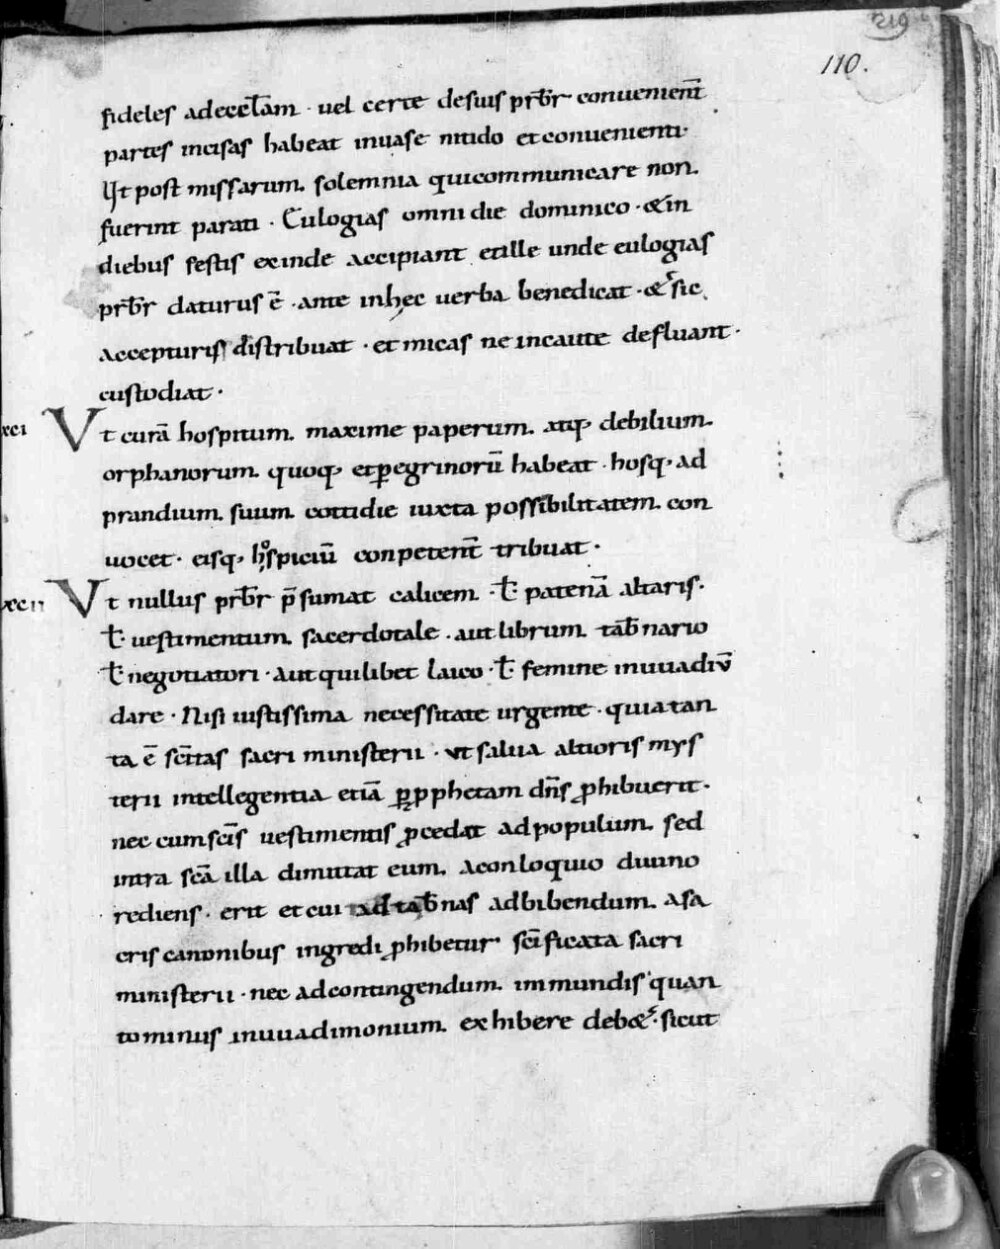 219
110.
fideles adeccł̄am · uel certe desuis prb̄r conuenient̄
partes incisas habeat inuase nitido etconuenienti·
Ut post missarum. solemnia quicommunicare non.
fuerint parati · Eulogias omni die dominico · &in
diebus festis exinde accipiant etille unde eulogias
prb̄r daturus ē · ante inhęc uerba benedicat · & sic
accepturis distribuat · et micas ne incaute defluant ·
custodiat ·
xci Vt curā hospitum. maxime paperum. atq; debilium.
orphanorum. quoq; et ꝑegrinorū habeat · hosq; ad
prandium. suum. cottidie iuxta possibilitatem. con
uocet · eisq; hospiciū conpetent̄ tribuat ·
xcii Vt nullus prb̄r p̄sumat calicem · ł patenā altaris.
ł uestimentum. sacerdotale · aut librum. tab̄nario
ł negotiatori · aut quilibet laico · ł femine inuuadiū
dare · Nisi iustissima necessitate urgente · quia tan
ta ē sc̄itas sacri ministerii · ut salua altioris mys
terii intellegentia etiā ꝑ ꝓphetam dn̄s ꝓhibuerit ·
nec cum sc̄is uestimentis ꝓcedat ad populum. sed
intra sc̄a illa dimittat eum. aconloquio diuino
rediens · erit et cui ad tab̄nas adbibendum. asa
cris canonibus ingredi ꝓhibetur sc̄ificata sacri
ministerii · nec adcontingendum. immundis quan
to minus inuuadimonium. exhibere deb& · sicut